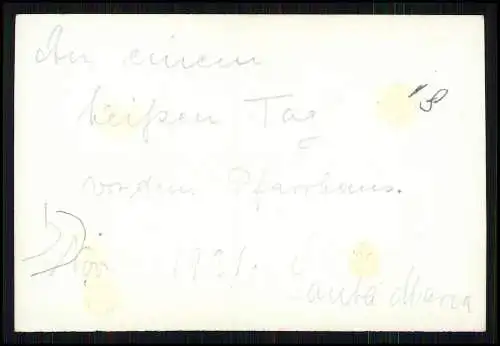 An einem
heißen Tag
vor dem Pfarrhaus.
Nov 1921.
Santa Maria